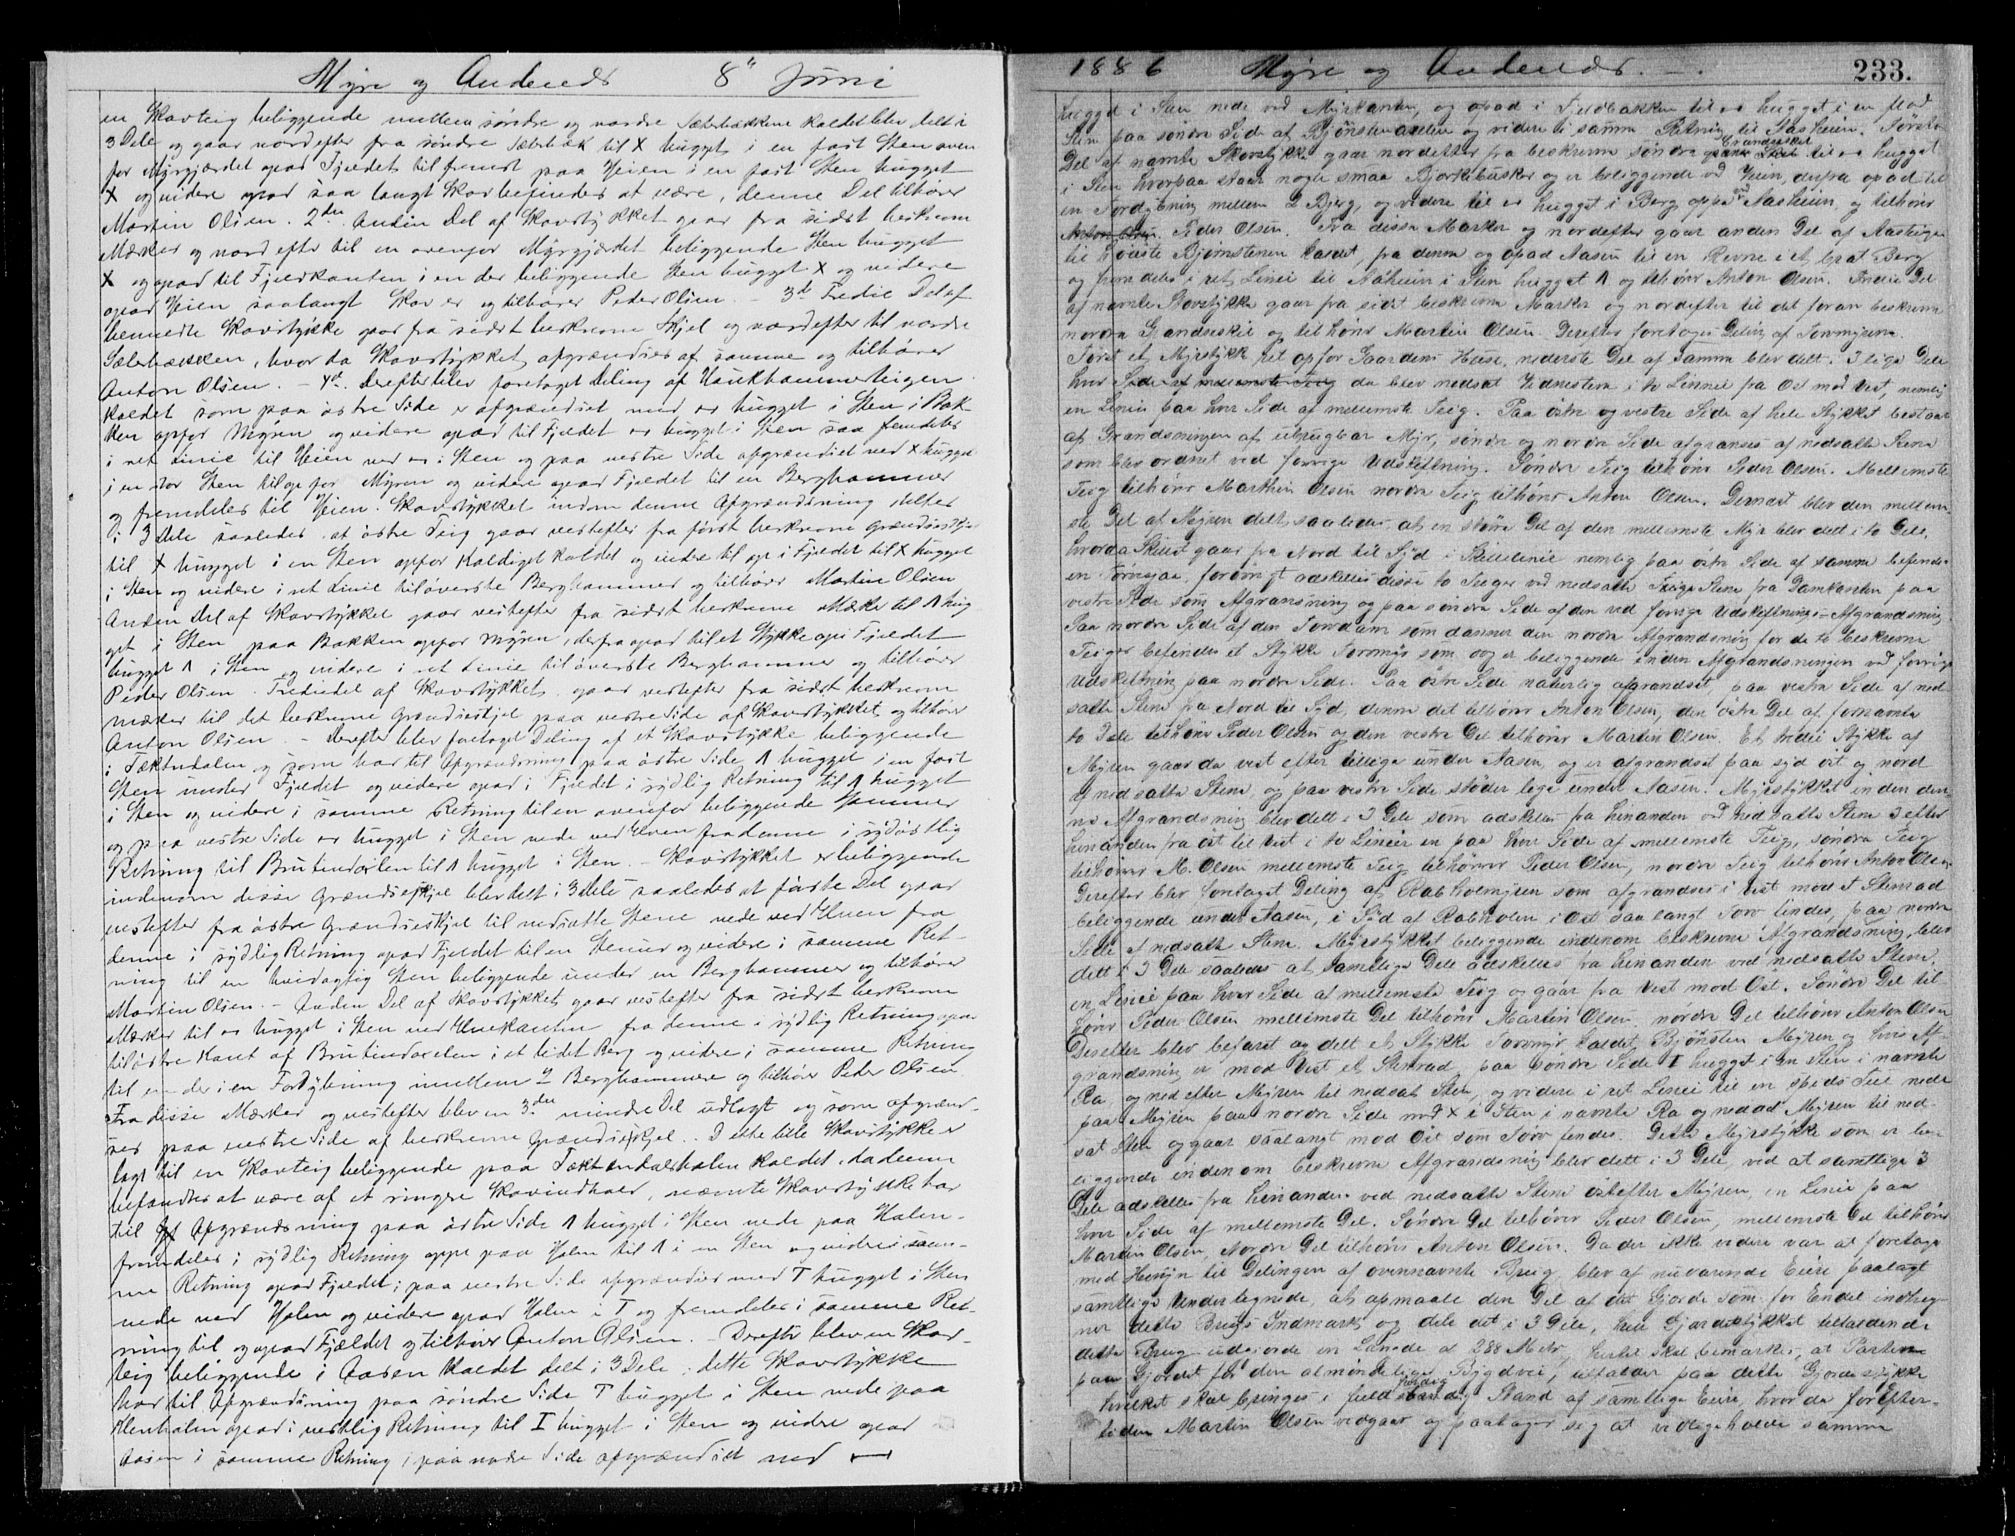 Myre og Andenes 8de Juni
en Skovteig beliggende mellem søndre og nordre Sæterbækkene kaldet blev delt i
3 Dele og gaar nordefter fra søndre Sæterbæk til X hugget i en fast Sten oven
for Myrgjærdet opad Fjeldet til fremst paa Heien i en fast Sten hugget
X og videre opad saa langt Skov befindes at være, denne Del tilhører
Martin Olsen. 2den Anden Del af Skovstykket gaar fra sidst beskrevne
Mærker og nordefter til en ovenfor Myrgjærdet beliggende Sten hugget
X og opad til Fjeldkanten i en der beliggende Sten hugget X og videre
opad Heien saalangt Skov er og tilhører Peder Olsen. – 3die Tredie Del af
benævnte Skovstykke gaar fra sidst beskrevne Skjel og nordefter til nordre
Sæterbækken, hvor da Skovstykket afgrændses af samme og tilhører
Anton Olsen. – 4de. Derefter blev foretaget Deling af Haukhammerteigen
kaldet som paa østre Side er afgrændset med ∞ hugget i Sten i Bak-
ken opfor Myren og videre opad til Fjeldet ∞ hugget i Sten saa fremdeles
i ret Linie til Heien ved ∞ i Sten og paa vestre Side afgrændset ved X hugget
i en stor Sten til op for Myren og videre opad Fjeldet til en Berghammer
og fremdeles til Heien. Skovstykket indom denne Afgrændsning deltes
i 3 Dele saaledes at østre Teig gaar vestefter fra først beskrevne Grændseskjel
til X hugget i en Sten opfor Kaldiget kaldet og videre til op i Fjeldet til X hugget
i Sten og videre i ret Linie til øverste Berghammer og tilhører Martin Olsen
Anden Del af Skovstykket gaar vestefter fra sidst beskrevne Mærke til Λ hug
get i Sten paa Bakken opfor Myren, derfra opad til et Stykke op i Fjeldet
hugget Λ i Sten og videre i ret Linie til øverste Berghammer og tilhører
Peder Olsen. Tredie del af Skovstykket gaar vestefter fra sidst beskrevne
mærker til det beskrevne Grændseskjel paa vestre Side af Skovstykket og tilhører
Anton Olsen. – Derefter blev foretaget Deling af et Skovstykke beliggende
i Tæktudalen og som har til Afgrændsning paa østre Side Λ hugget i en fast
Sten under Fjeldet og videre opad i Fjeldet i sydlig Retning til Λ hugget
i Sten og videre i samme Retning til en ovenfor beliggende Hammer
og paa vestre Side ∞ hugget i Sten nede ved Elven fra denne i sydøstlig
Retning til Brutindaxlen til Λ hugget i Sten. – Skovstykket er beliggende
indenom disse Grændseskjel blev delt i 3 Dele saaledes at første Del gaar
vestefter fra østre Grændseskjel til nedsatte Stene nede ved Elven fra
denne i sydlig Retning opad Fjeldet til en Stenur og videre i samme Ret-
ning til en hvidagtig Sten beliggende under en Berghammer og tilhører
Martin Olsen. – Anden Del af Skovstykket gaar vestefter fra sidst beskrevne
Mærker til ∞ hugget i Sten ved Elvekanten fra denne i sydlig Retning opad
til østre Kant af Brutindaxelen i et lidet Berg og videre i samme Retning
til en der i en Fordybning mellem 2 Berghammere og tilhører Peder Olsen.
Fra disse Mærker og vestefter blev en 3die mindre Del udlagt og som afgrænd-
ses paa vestre Side af beskrevne Grændseskjel. Dette lille Skovstykke er
lagt til en Skovteig beliggende paa Tæktendalshalen kaldet, da denne
befandtes at være af et ringere Skovindhold, nævnte Skovstykke har
til Afgrændsning paa østre Side Λ hugget i Sten nede paa Halen-
fremdeles i sydlig Retning oppe paa Halen til Λ i en Sten og videre i sam-
me Retning opad Fjeldet, paa vestre Side afgrændses med T hugget i Sten
nede ved Halen og videre opad Halen i T og fremdeles i samme Ret-
ning til og opad Fjældet og tilhører Anton Olsen. – Derefter blev en Skov-
teig beliggende i Aasen kaldet delt i 3 Dele, dette Skovstykke
har til Afgrændsning paa søndre Side T hugget i Sten nede paa
opad i vestlig Retning til I hugget i Sten og videre opad
Aasen i samme Retning, paa nordre Side afgrændset ved
1886 Myre og Andenes. 233.
hugget i Sten nede ved Myrkanten, og opad i Fjeldbakken til ∞ hugget i en flad
Sten paa søndre Side af Bjønstenaxlen og videre til samme Retning til Aasheien. Første
Del af nævnte Skovstykke gaar nordefter fra beskrevne søndre Grændseskjel til ∞ hugget
i Sten hvorpaa staar nogle smaa Bjørkebusker og er beliggende ved Veien, derfra opad til
en Fordybning mellem 2 Bjerg, og videre til ∞ hugget i Berg oppe ved Aasheien, og tilhører
Anton Olsen. Peder Olsen. Fra disse Mærker og nordefter gaar anden Del af Aasteigen
til høieste Bjørnstenen kaldet, fra denne og opad Aasen til en Revne i et brat Berg
og fremdeles i ret Linie til Aasheien i Sten hugget Λ og tilhører Anton Olsen. Tredie Del
af nævnte Skovstykke gaar fra sidst beskrevne Mærker og nordefter til det foran beskrevne
nordre Grændseskil og tilhører Martin Olsen. Derefter foretoges Deling af Torvmyrene.
Først et Myrstykke ret opfor Gaardens Huse, nederste Del af samme blev delt i 3 lige Dele
hver Side af mellemste Teig da blev nedsat Vidnesteen i to Linier fra Øst mod Vest, nemlig
en Linie paa hver Side af mellemste Teig. Paa østre og vestre Side af hele Stykket bestaar
af Grændsningen af ubrugbar Myr, søndre og nordre Side afgrænses af nedsatte Stene
som blev ordnet ved forrige Udskiftning. Søndre Teig tilhører Peder Olsen. Mellemste
Teig tilhører Marthin Olsen nordre Teig tilhører Anton Olsen. Dernæst blev den mellem
ste Del af Myren delt, saaledes at en større Del af den mellemste Myr blev delt i to Dele,
hvorda Skillet gaar fra Nord til Syd i Skillelinie nemlig paa østre Side af samme befindes
en forøvrigt adskilles disse to Teiger ved nedsatte Stene fra Damkanten paa
vestre Side som Afgrænsning og paa søndre Side af den ved forrige Udskiftnings-Afgrændsning
Paa nordre Side af den Torvdam som danner den nordre Afgrændsning for de to beskrevne
Teiger befindes et Stykke Torvmyr som og er beliggende inden Afgrændsningen ved forrige
Udskiftning paa nordre Side. Paa østre Side naturlig afgrændset, paa vestre Side af ned-
satte Stene fra Nord til Syd, denne del tilhører Anton Olsen, den østre Del af fornævnte
to Dele tilhører Peder Olsen og den vestre Del tilhører Martin Olsen. Et tredie Stykke af
Myren gaar da vest efter tillige under Aasen, og er afgrændset paa syd øst og nord
af nedsatte Stene, og paa vestre Side støder lige under Aasen. Myrstykket inden den-
ne Afgrændsning blev delt i 3 Dele som adskilles fra hinanden ved nedsatte Stene 3 efter
hinanden fra øst til Vest i to Linier en paa hver Side af mellemste Teig, søndre Teig
tilhører M. Olsen mellemste Teig tilhører Peder Olsen, nordre Teig tilhører Anton Olsen
Derefter blev foretaget Deling af Rabholmyren som afgrændses i Vest mod et Stenrad
beliggende under Aasen, i Syd af Rabholen i Øst saalangt Torv findes, paa nordre
Side af nedsatte Stene. Myrstykket beliggende indenom beskrevne Afgrændsning, blev
delt i 3 Dele saaledes at samtlige Dele adskilles fra hinanden ved nedsatte Stene,
en Linie paa hver Side af mellemste Teig og gaar fra Vest mod Øst. Søndre Del til-
hører Peder Olsen mellemste Del tilhører Martin Olsen nordre Del tilhører Anton Olsen
Desefter blev befaret og delt et Stykke Torvmyr kaldet Bjønsten Myren og hvis Af-
grændsning er mod Vest et Stenrad, paa søndre Side I hugget i en Sten i nævnte
Ra og ned efter Myren til nedsat Sten, og videre i ret Linie til en spids Sten nede
paa Myren paa nordre Side med X i Sten i nævnte Ra og nedad Myren til ned-
sat Sten og gaar saalangt mod Øst som Torv findes. Dette Myrstykke som er be-
liggende inden om beskrevne Afgrændsning blev delt i 3 Dele, ved at samtlige 3
Dele adskilles fra hinanden ved nedsatte Stene østefter Myren, en Linie paa
hver Side af mellemste Del. Søndre Del tilhører Peder Olsen, mellemste Del tilhører
Martin Olsen, Nordre Del tilhører Anton Olsen. Da der ikke videre var at foretage
med Hensyn til Delingen af ovennævnte Brug, blev af nuværende Eiere paalagt
samtlige Undertegnede, at opmaale den Del af det Gjerde som for Endel indheg
ner dette Brugs Indmark, og dele det i 3 Dele, hele Gjærdestykket tilfaldende
dette Brug udgjorde en Længde af 288 Meter, hertil skal bemærkes, at Parten
paa Gjærdet for den almindelige Bygdvei, tilfalder paa dette Gjerdestykke
hvilket skal bringes i fuld færdig Stand af samtlige Eiere, hvor da for Efter-
tiden Martin Olsen vedgaar og paatager sig at vedligeholde samme